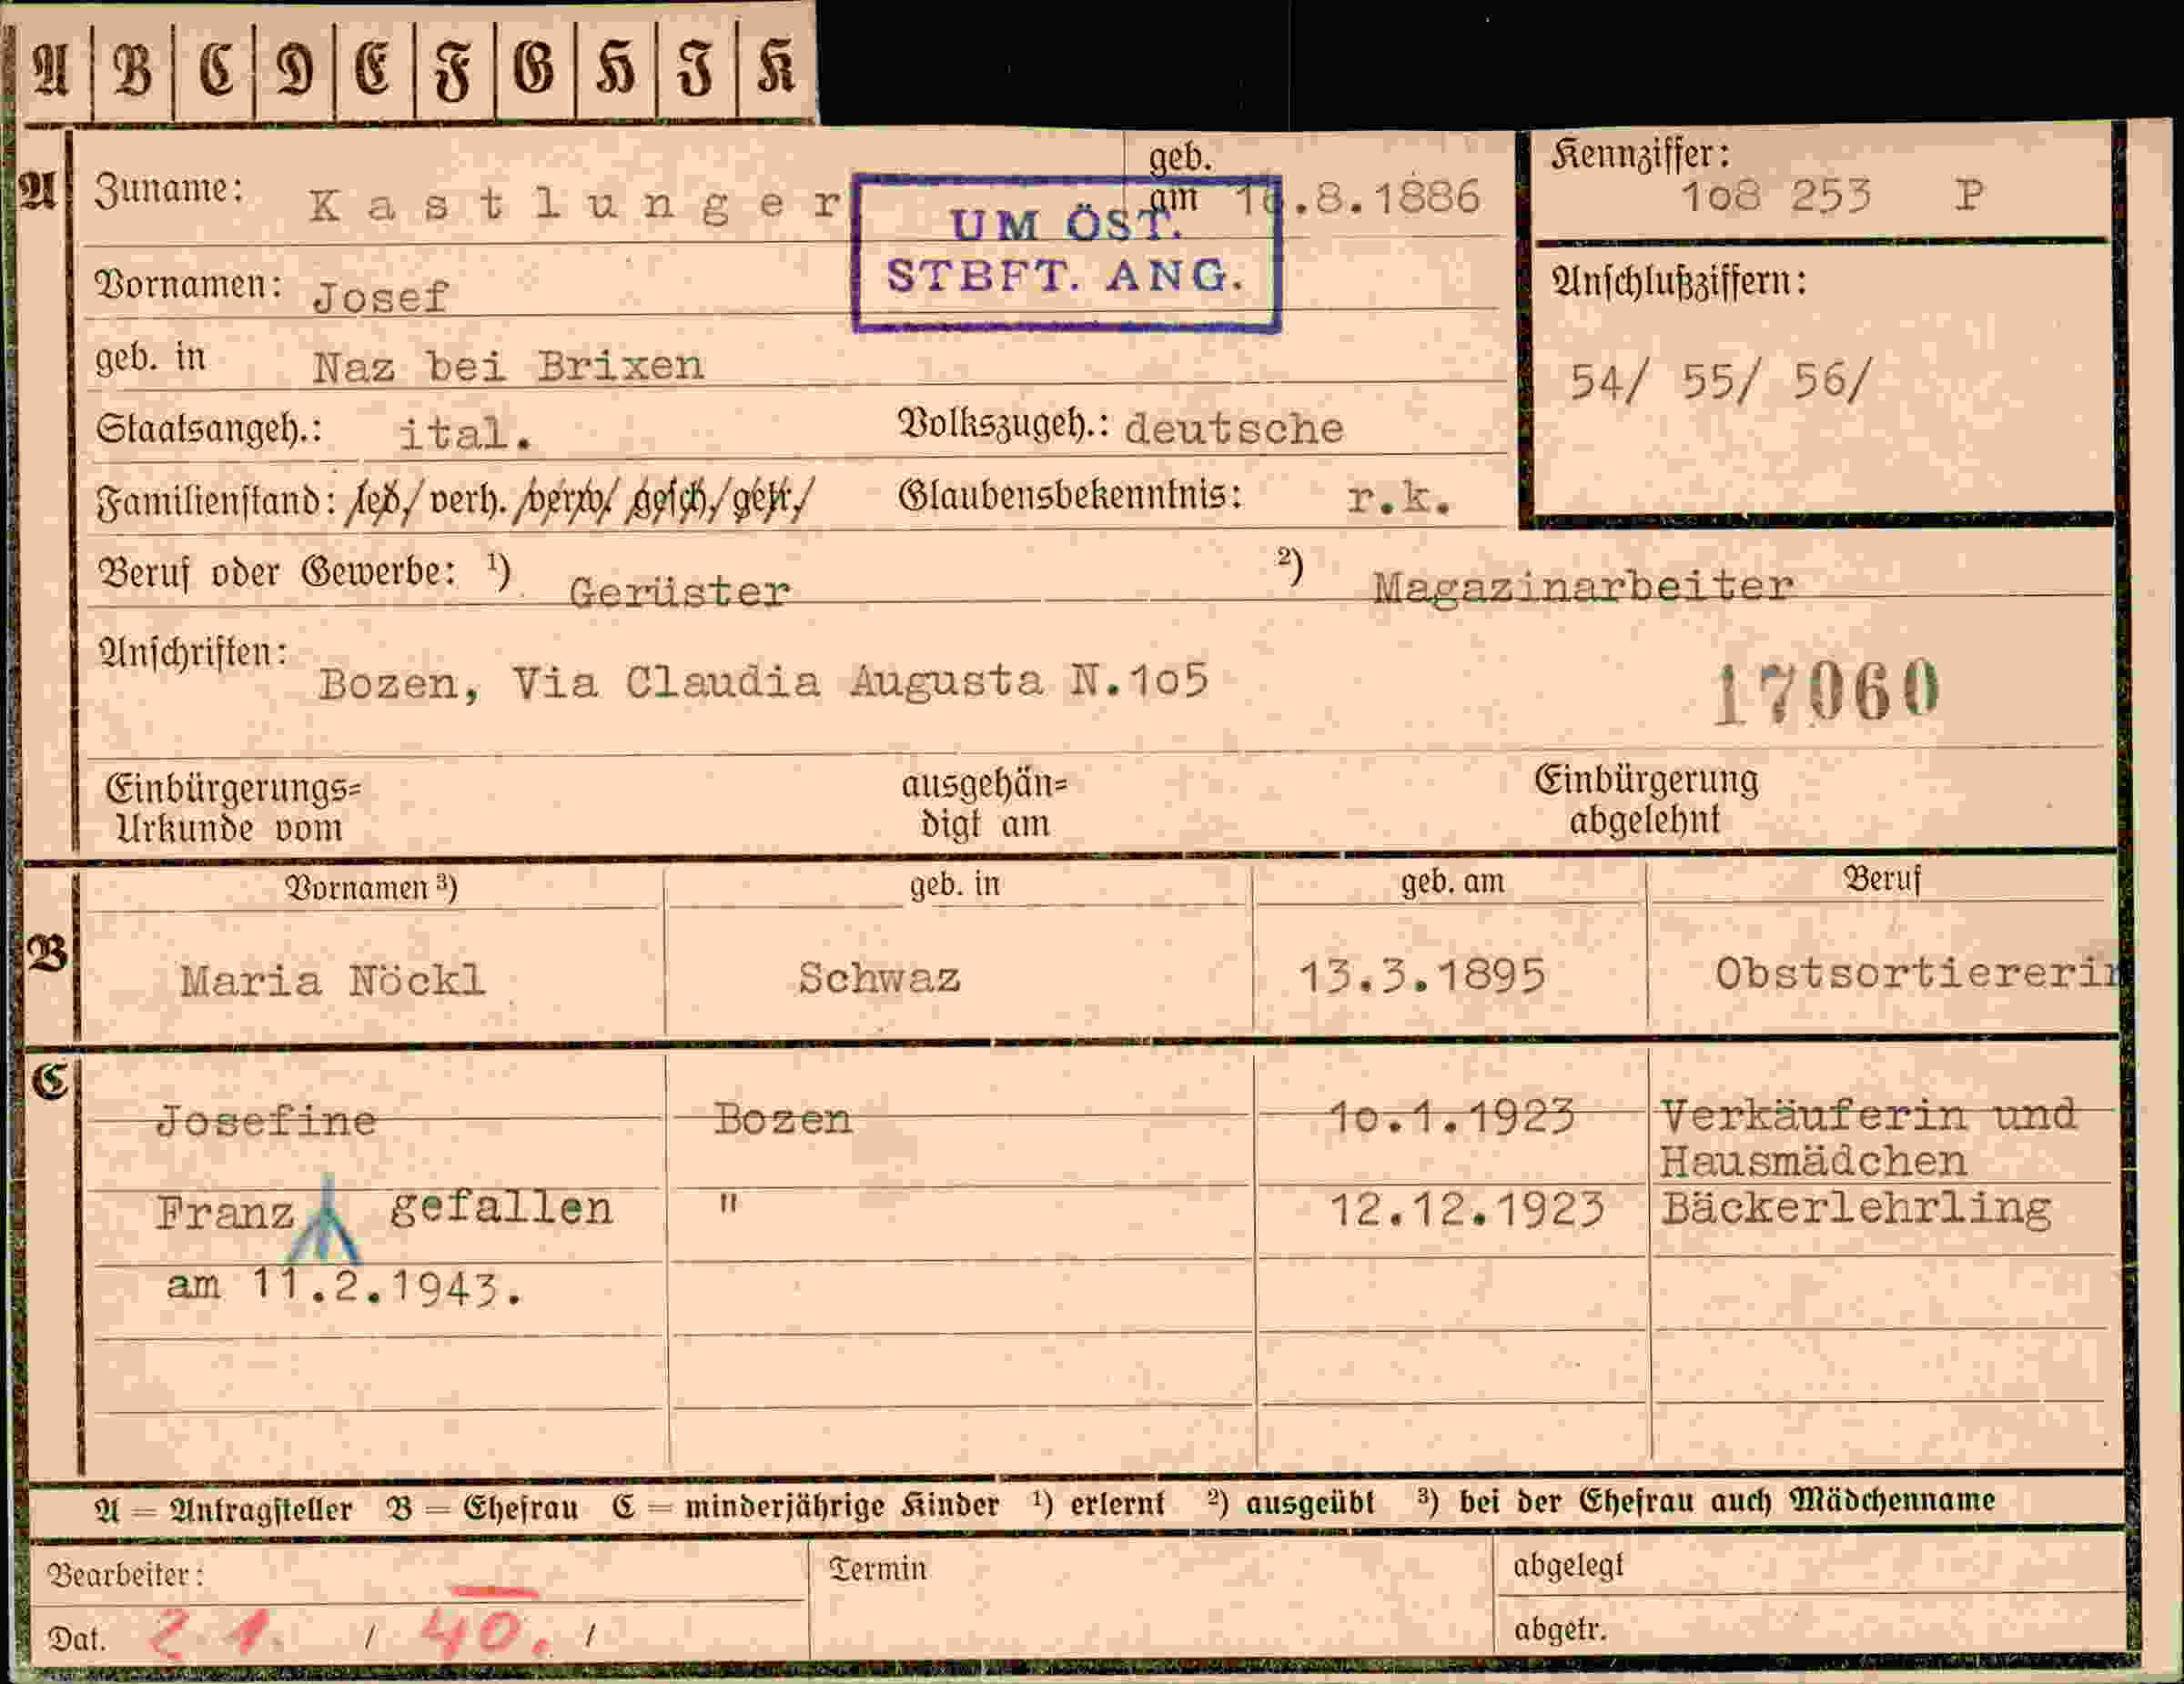 A B C D E F G H I K
A Zuname: Kastlunger geb. am .8.1886
UM ÖST.
STBFT. ANG.
Kennziffer:
1o8 253 P
Vornamen: Josef
Anschlußziffern:
54/ 55/ 56/
geb. in Naz bei Brixen
Staatsangeh.: ital. Volkszugeh.: deutsche
Familienstand: led/ verh. /verw/ gesch/ getr/ Glaubensbekenntnis: r.k.
Beruf oder Gewerbe: ¹) Gerüster ²) Magazinarbeiter
Anschriften: Bozen, Via Claudia Augusta N.1o5
17060
Einbürgerungs= Urkunde vom
ausgehän= digt am
Einbürgerung abgelehnt
Vornamen ³) geb. in geb. am Beruf
B Maria Nöckl Schwaz 13.3.1895 Obstsortiererin
C Josefine Bozen 1o.1.1923 Verkäuferin und
Hausmädchen
Franz gefallen " 12.12.1923 Bäckerlehrling
am 11.2.1943.
A = Antragsteller B = Ehefrau C = minderjährige Kinder ¹) erlernt ²) ausgeübt ³) bei der Ehefrau auch Mädchenname
Bearbeiter: Termin abgelegt
Dat. 2 1. / 40. / abgetr.